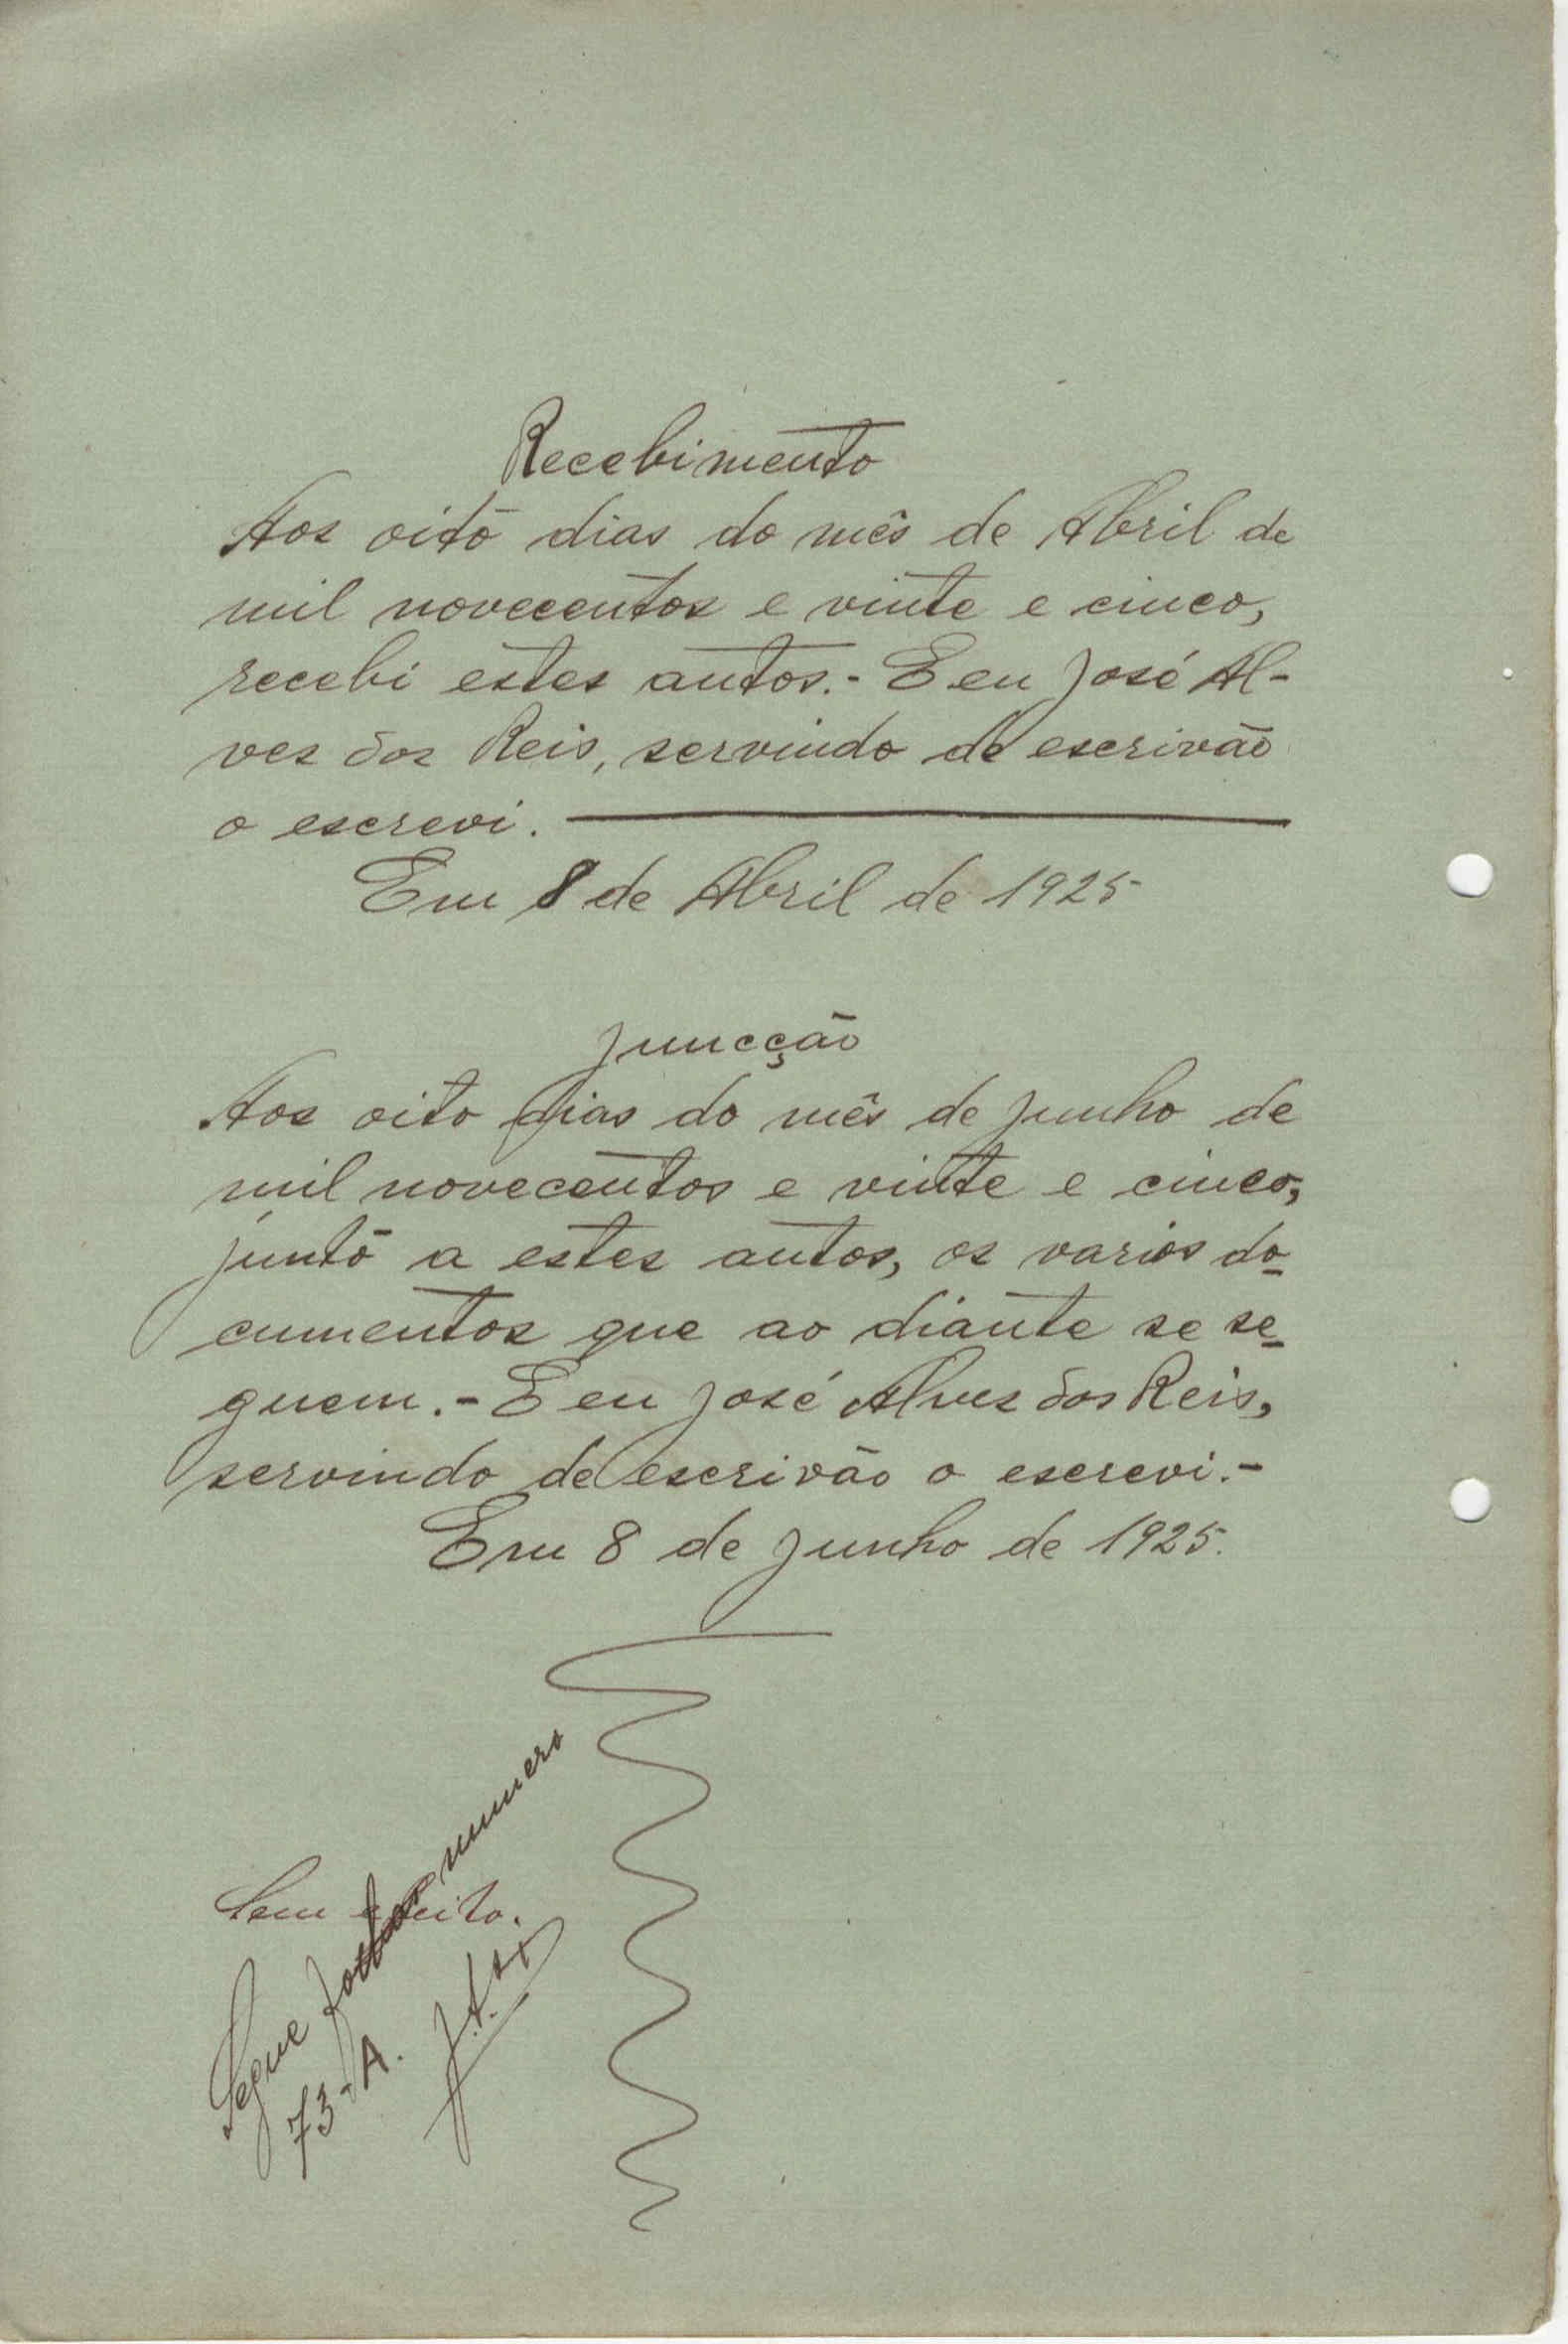 Recebimento
Aos oito dias do mês de Abril de
mil novecentos e vinte e cinco,
recebi estes autos.- E eu José Al-
ves dos Reis, servindo de escrivão
o escrevi.
Em 8 de Abril de 1925
Juncção
Aos oito dias do mês de Junho de
mil novecentos e vinte e cinco,
junto a estes autos, os varios do-
cumentos que ao diante se se-
guem.- E eu José Alves dos Reis,
servindo de escrivão o escrevi.-
Em 8 de Junho de 1925.
Sem efeito.
Segue folhas numero
73-A.